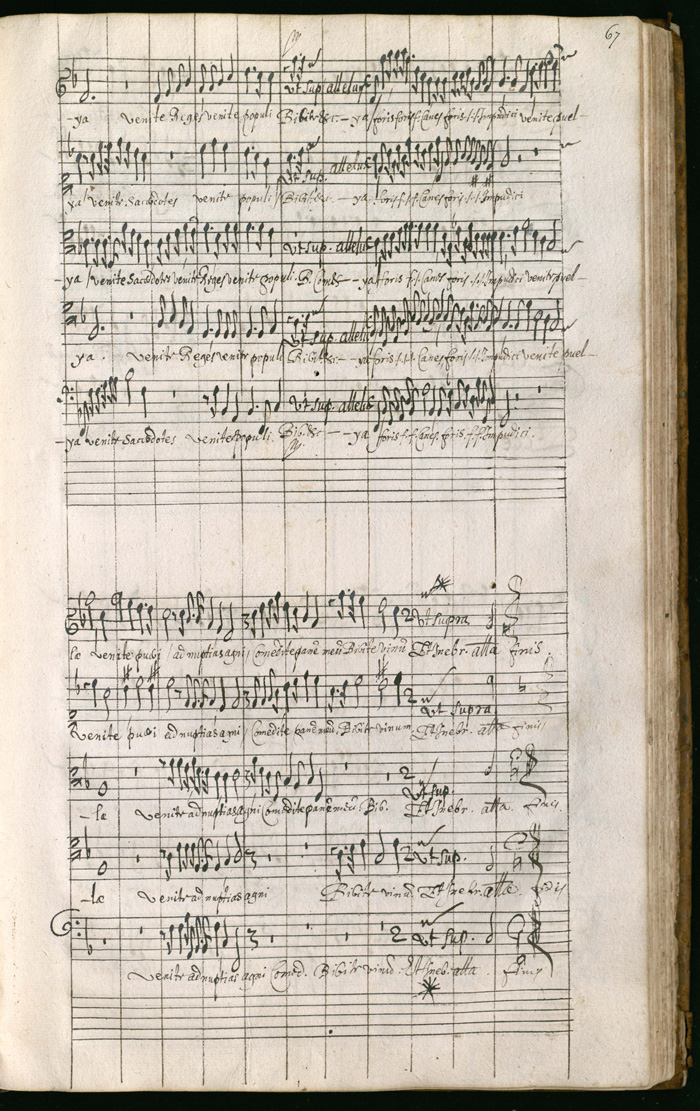 67
Ut sup. alleluĩ
-ya venite Reges venite populi Bibite &c - ya foris foris f. Canes foris .f.f. Impudici venite puel-
Ut sup. alleluĩ
ya venite Sacerdotes venite populi Bibit. &c. - ya foris .f.f. Canes foris .f.f. Impudici
Ut sup. alleluĩ
-ya venite Sacerdotes venite Reges venite populi. B. Com &c - ya foris .f.f. Canes foris .f.f. Impudici venite puel-
Ut sup. alleluĩ
ya. venite Reges venite populi Bibit. &c - ya foris .f.f. Canes foris .f.f. Impudici venite puel-
Ut sup. alleluĩ
-ya venite Sacerdotes venite populi. Bib. &c - ya foris .f.f. Canes. foris .f.f. Impudici.
Ut supra
læ venite pueri ad nuptias agni Comedite panẽ meũ Bibite vinũ Et Inebr. alla finis.
Ut supra
Venite pueri ad nuptias agni Comedite panẽ meũ. Bibite vinum. Et Inebr. alla finis
Ut sup.
-læ venite ad nuptias agni Comedite panẽ meũ. Bib. Et Inebr. alla. finis.
Ut sup.
-læ venite ad nuptias agni Bibite vinũ. Et Inebr. alla. finis
Ut sup.
venite ad nuptias agni Comed. Bibite vinũ. Et Inebr. alla. finis